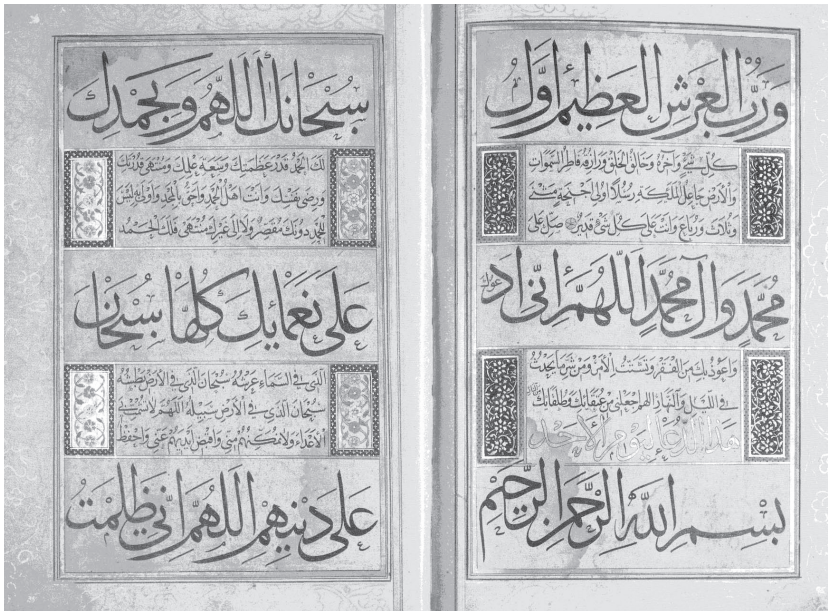 وربّ العرش العظيم اوّل
كلّ شيء وآخره وخالق الخلق ورازقه فاطر السّموات
والأرض جاعل الملئكة رسلا اولى اجنحة مثنى
وثلاث ورباع وانت على كلّ شيء قدير صلّ على
محمّد وآل محمّد اللهمّ انّى ادعوك
واعوذ بك من الفقر وتشتّت الأمر ومن شرّ ما يحدث
فى اللّيل والنّهار اللهمّ اجعلنى من عتقائك وطلقائك
هذا الدّعا ليوم الأحد
بسم الله الرّحمن الرّحيم
سبحانك اللّهمّ وبحمدك
لك الحمد قدر عظمتك وسعة علمك ومنتهى قدرتك
ورضى نفسك وانت اهل الحمد واحقّ بالحمد واولى به ليس
للحمد دونك مقصر ولا الى غيرك منتهى فلك الحمد
على نعمايك كلّها سبحان
الّذى فى السّماء عرشه سبحان الّذى فى الأرض بطشه
سبحان الّذى فى الأرض سبيله اللهمّ لا تشمت بى
الأعداء ولا تمكّنهم منّى واقبض ايديهم عنّى واحفظ
على دينهم اللهمّ انّى ظلمت